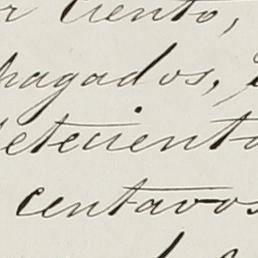 r ciento,
pagados,
setecientos
centavos